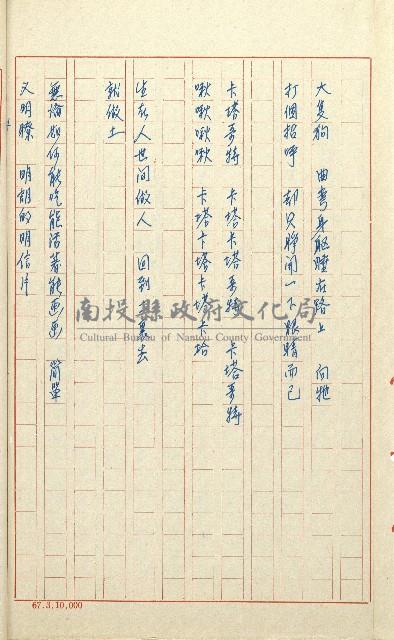 大隻狗 曲彎身軀睡在路上 向牠
打個招呼 却只睜開一下眼睛而已
卡塔哥特 卡塔卡塔哥特 卡塔哥特
啾啾啾啾 卡塔塔卡塔卡塔卡哈
生在人世間做人 回到 裏去
就做土
無論如何能吃能活著能画画 簡單
又明瞭 明朗的明信片
南投縣政府文化局
Cultural Bureau of Nantou County Government
67.3.10,000